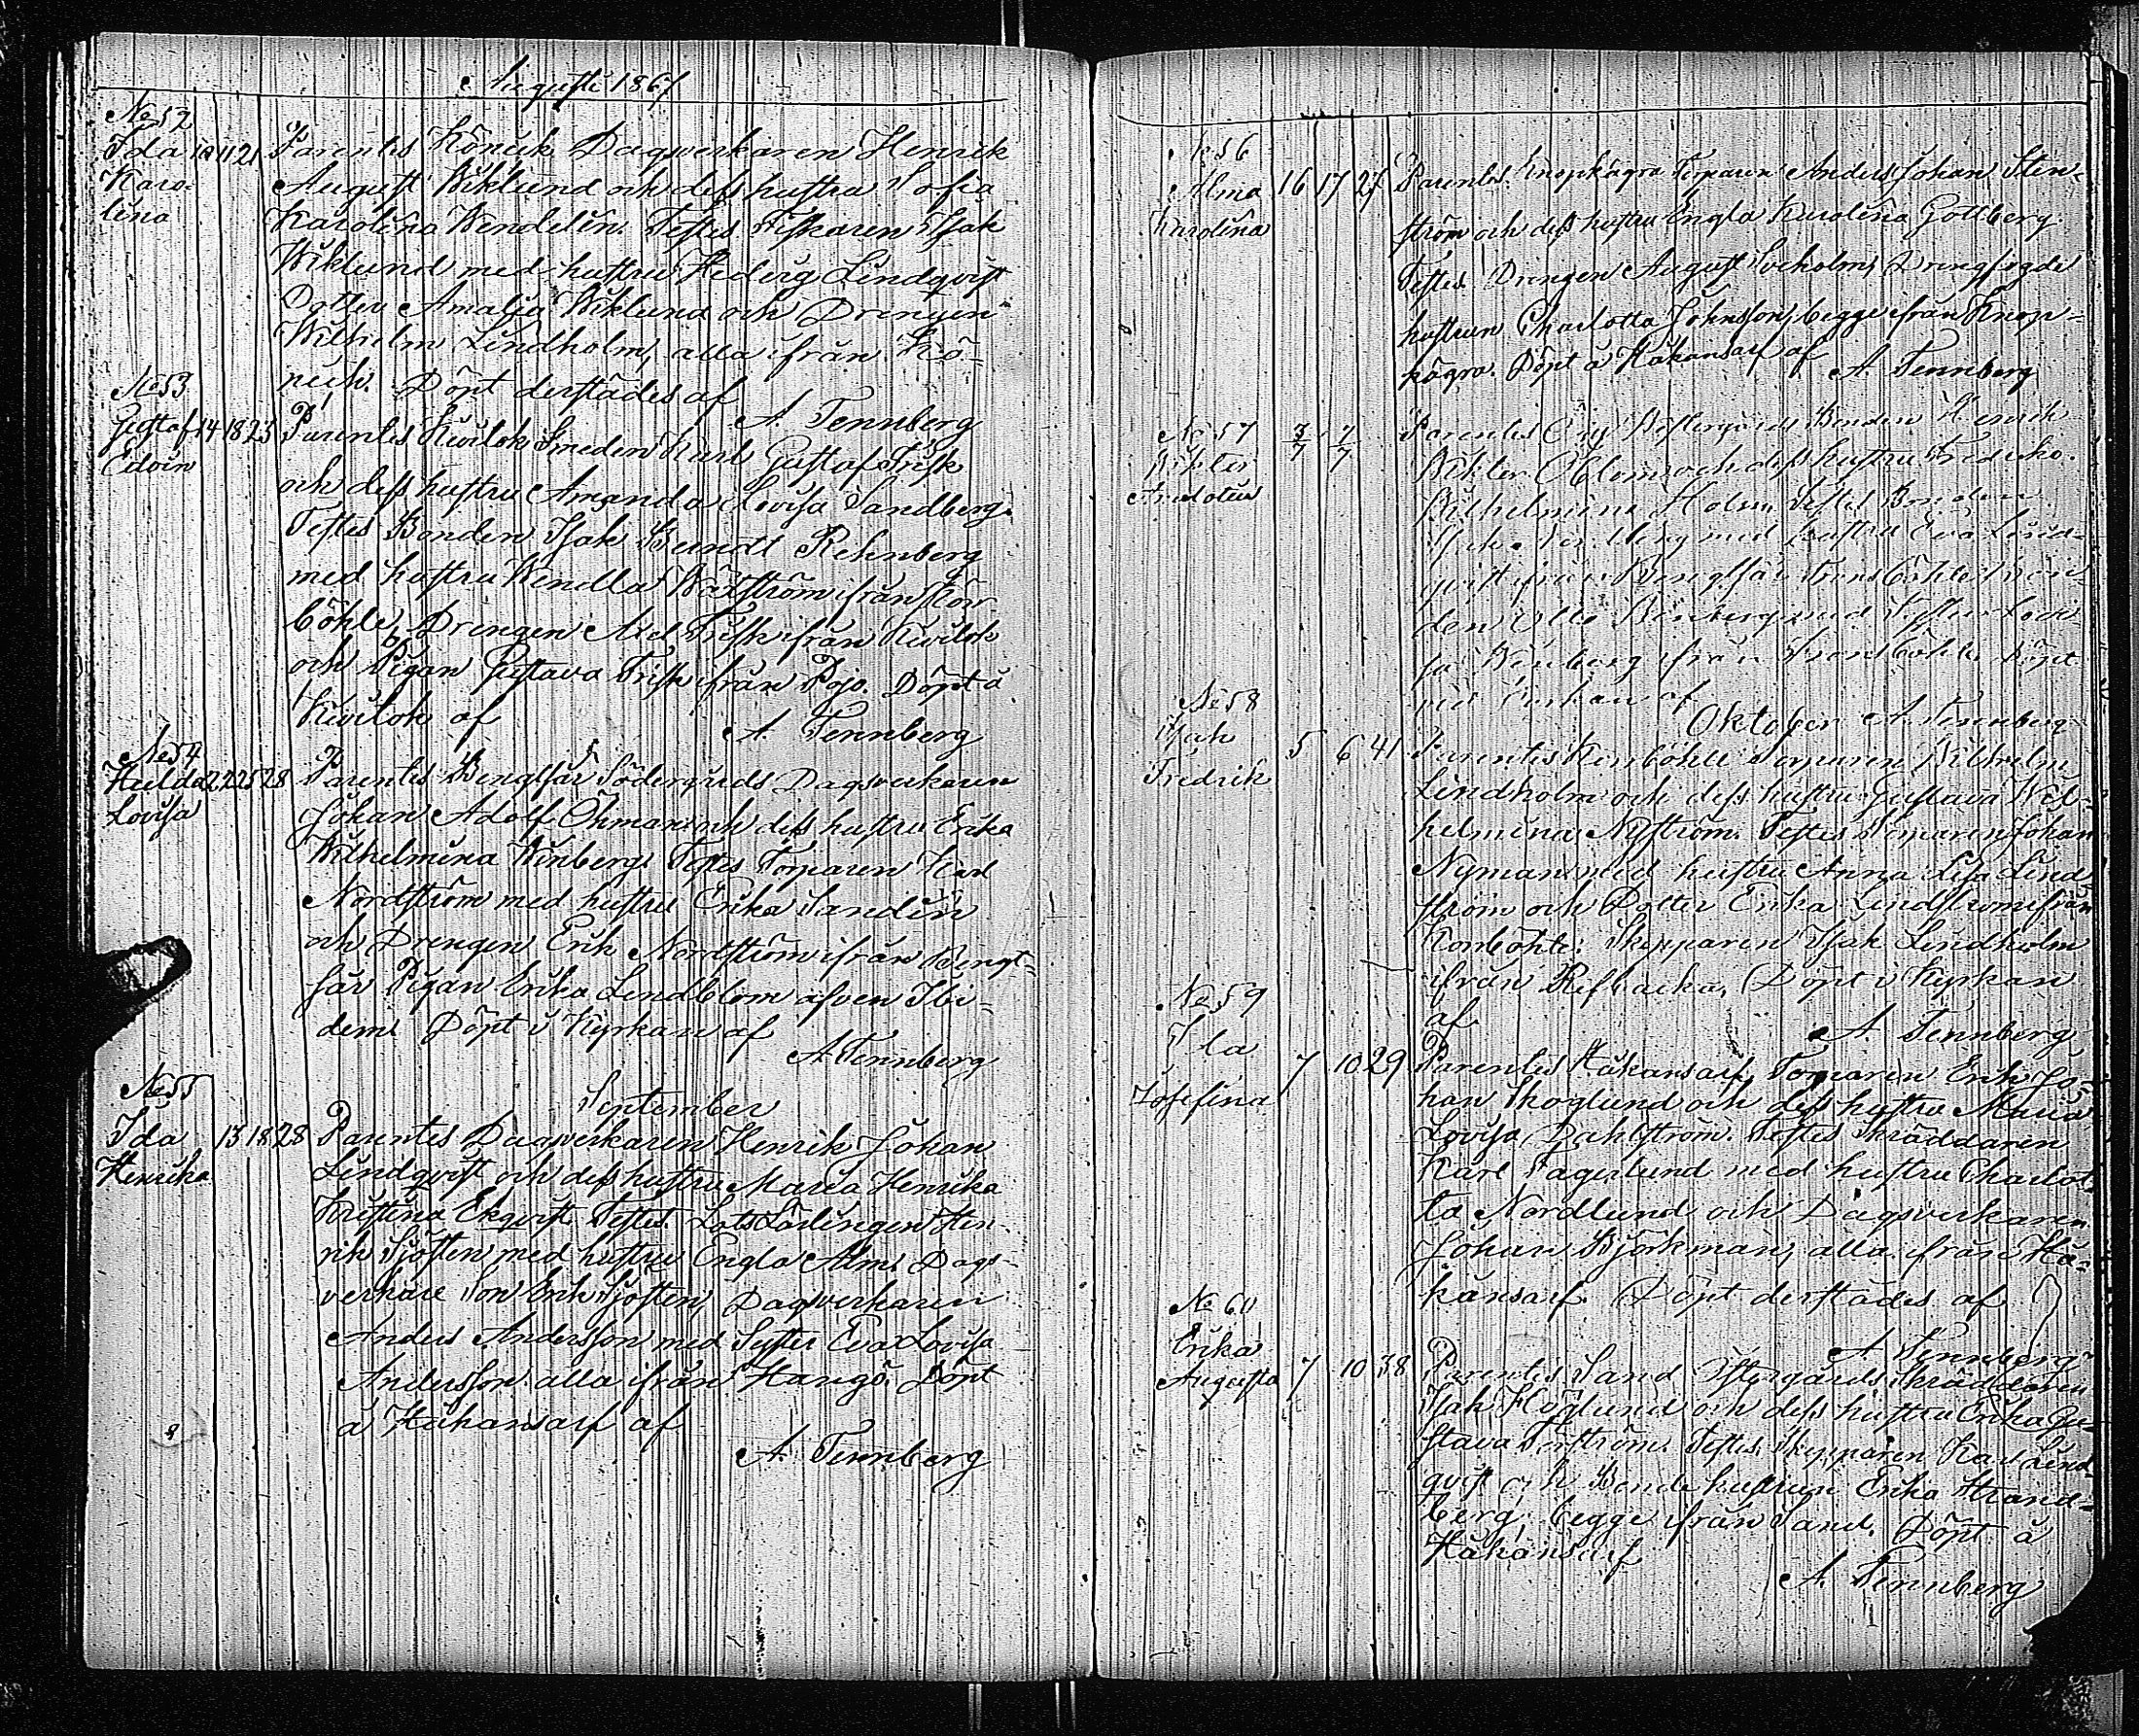 Augusti 1867
No 52
Ida 10 11 21 Parentes Könuik Dagsverkaren Henrik
Karo- August Wiklund och dess hustru Sofia
lina Karolina Wendelin. Testes Fiskaren Isak
Wiklund med hustru Hedvig Lindqvist
Dotter Amalia Wiklund och Drengen
Wilhelm Lindholm, alla ifrån Kö-
nuik. Döpt derstädes af
A. Tennberg
No 53
Gustaf 14 18 23 Parentes Kuilok Smeden Karl Gustaf Frisk
Edvin och dess hustru Amanda Lovisa Sandberg.
Testes Bonden Isak Berndt Rehnberg
med hustru Wendla Wäxström ifrån Korr
böhle, Drengen Axel Frisk ifrån Kuilok
och Pigan Gustava Frisk ifrån Pojo. Döpt å
Kuilok af
A. Tennberg
No 54
Hulda 22 25 28 Parentes Bengtsår Södergårds Dagsverkaren
Lovisa Johan Adolf Öhman och dess hustru Erika
Wilhelmina Winberg. Testes Torparen Karl
Nordström med hustru Erika Sandin
och Drengen Erik Nordström ifrån Bengt-
sår Pigan Erika Lindblom äfven Ibi-
dem. Döpt i Kyrkan af
A. Tennberg
No 55
September
Ida 13 18 28 Parentes Dagsverkaren Henrik Johan
Henrika Lindqvist och dess hustru Maria Henrika
Kristina Ekqvist. Testes Lots Lärlingen Hen-
rik Sjösten med hustru Engla Alm, Dags-
verkare Son Erik Sjösten, Dagsverkaren
Anders Andersson med Syster Eva Lovisa
Andersson alla ifrån Hangö. Döpt
å Håkansarf af
A. Tennberg
No 56
Alma 16 17 27 Parentes Knopkägra Torparen Anders Johan Sten-
Karolina ström och dess hustru Engla Karolina Gottberg.
Testes Drengen August Sveholm, Dreng
hustrun Charlotta Johnsson, begge ifrån Knop-
kägra. Döpt å Håkansarf af
A. Tennberg
No 57
Wikter Parentes Öby Westergårds Bonden Henrik
Wikter Öblom och dess hustru Fredrika
Wilhelmina Holm. Testes Bonden
med hustru Eva Lind-
qvist ifrån Bengtsår
med Syster Lovi-
sa Winberg ifrån Döpt
i Kyrkan af
A. Tennberg
Oktober
No 58
Isak 5 6 41 Parentes Korrböhle Torparen Wilhelm
Fredrik Lindholm och dess hustru Gustava Wil-
helmina Nyström. Testes Torparen Johan
Nyman med hustru Anna Lisa Lind-
ström och Dotter Erika Lindström ifrån
Korrböhle. Skepparen Isak Lindholm
ifrån Refbacka. Döpt i Kyrkan
af
A. Tennberg
No 59
Ida 7 10 29 Parentes Håkansarf Torparen Erik Jo-
Josefina han Skoglund och dess hustru Maria
Lovisa Dahlström. Testes Skräddaren
Karl Fagerlund med hustru Charlot-
ta Nordlund och Dagsverkaren
Johan Björkman, alla ifrån Hå-
kansarf. Döpt derstädes af
A. Tennberg
No 60
Erika
Augusta 7 10 38 Parentes Sand Östergårds Skräddaren
Isak Höglund och dess hustru Erika Gu-
stava Törström. Testes Skepparen Karl Lind-
qvist och Bonde hustrun Erika Strand-
berg, begge ifrån Sand. Döpt å
Håkansarf
A. Tennberg